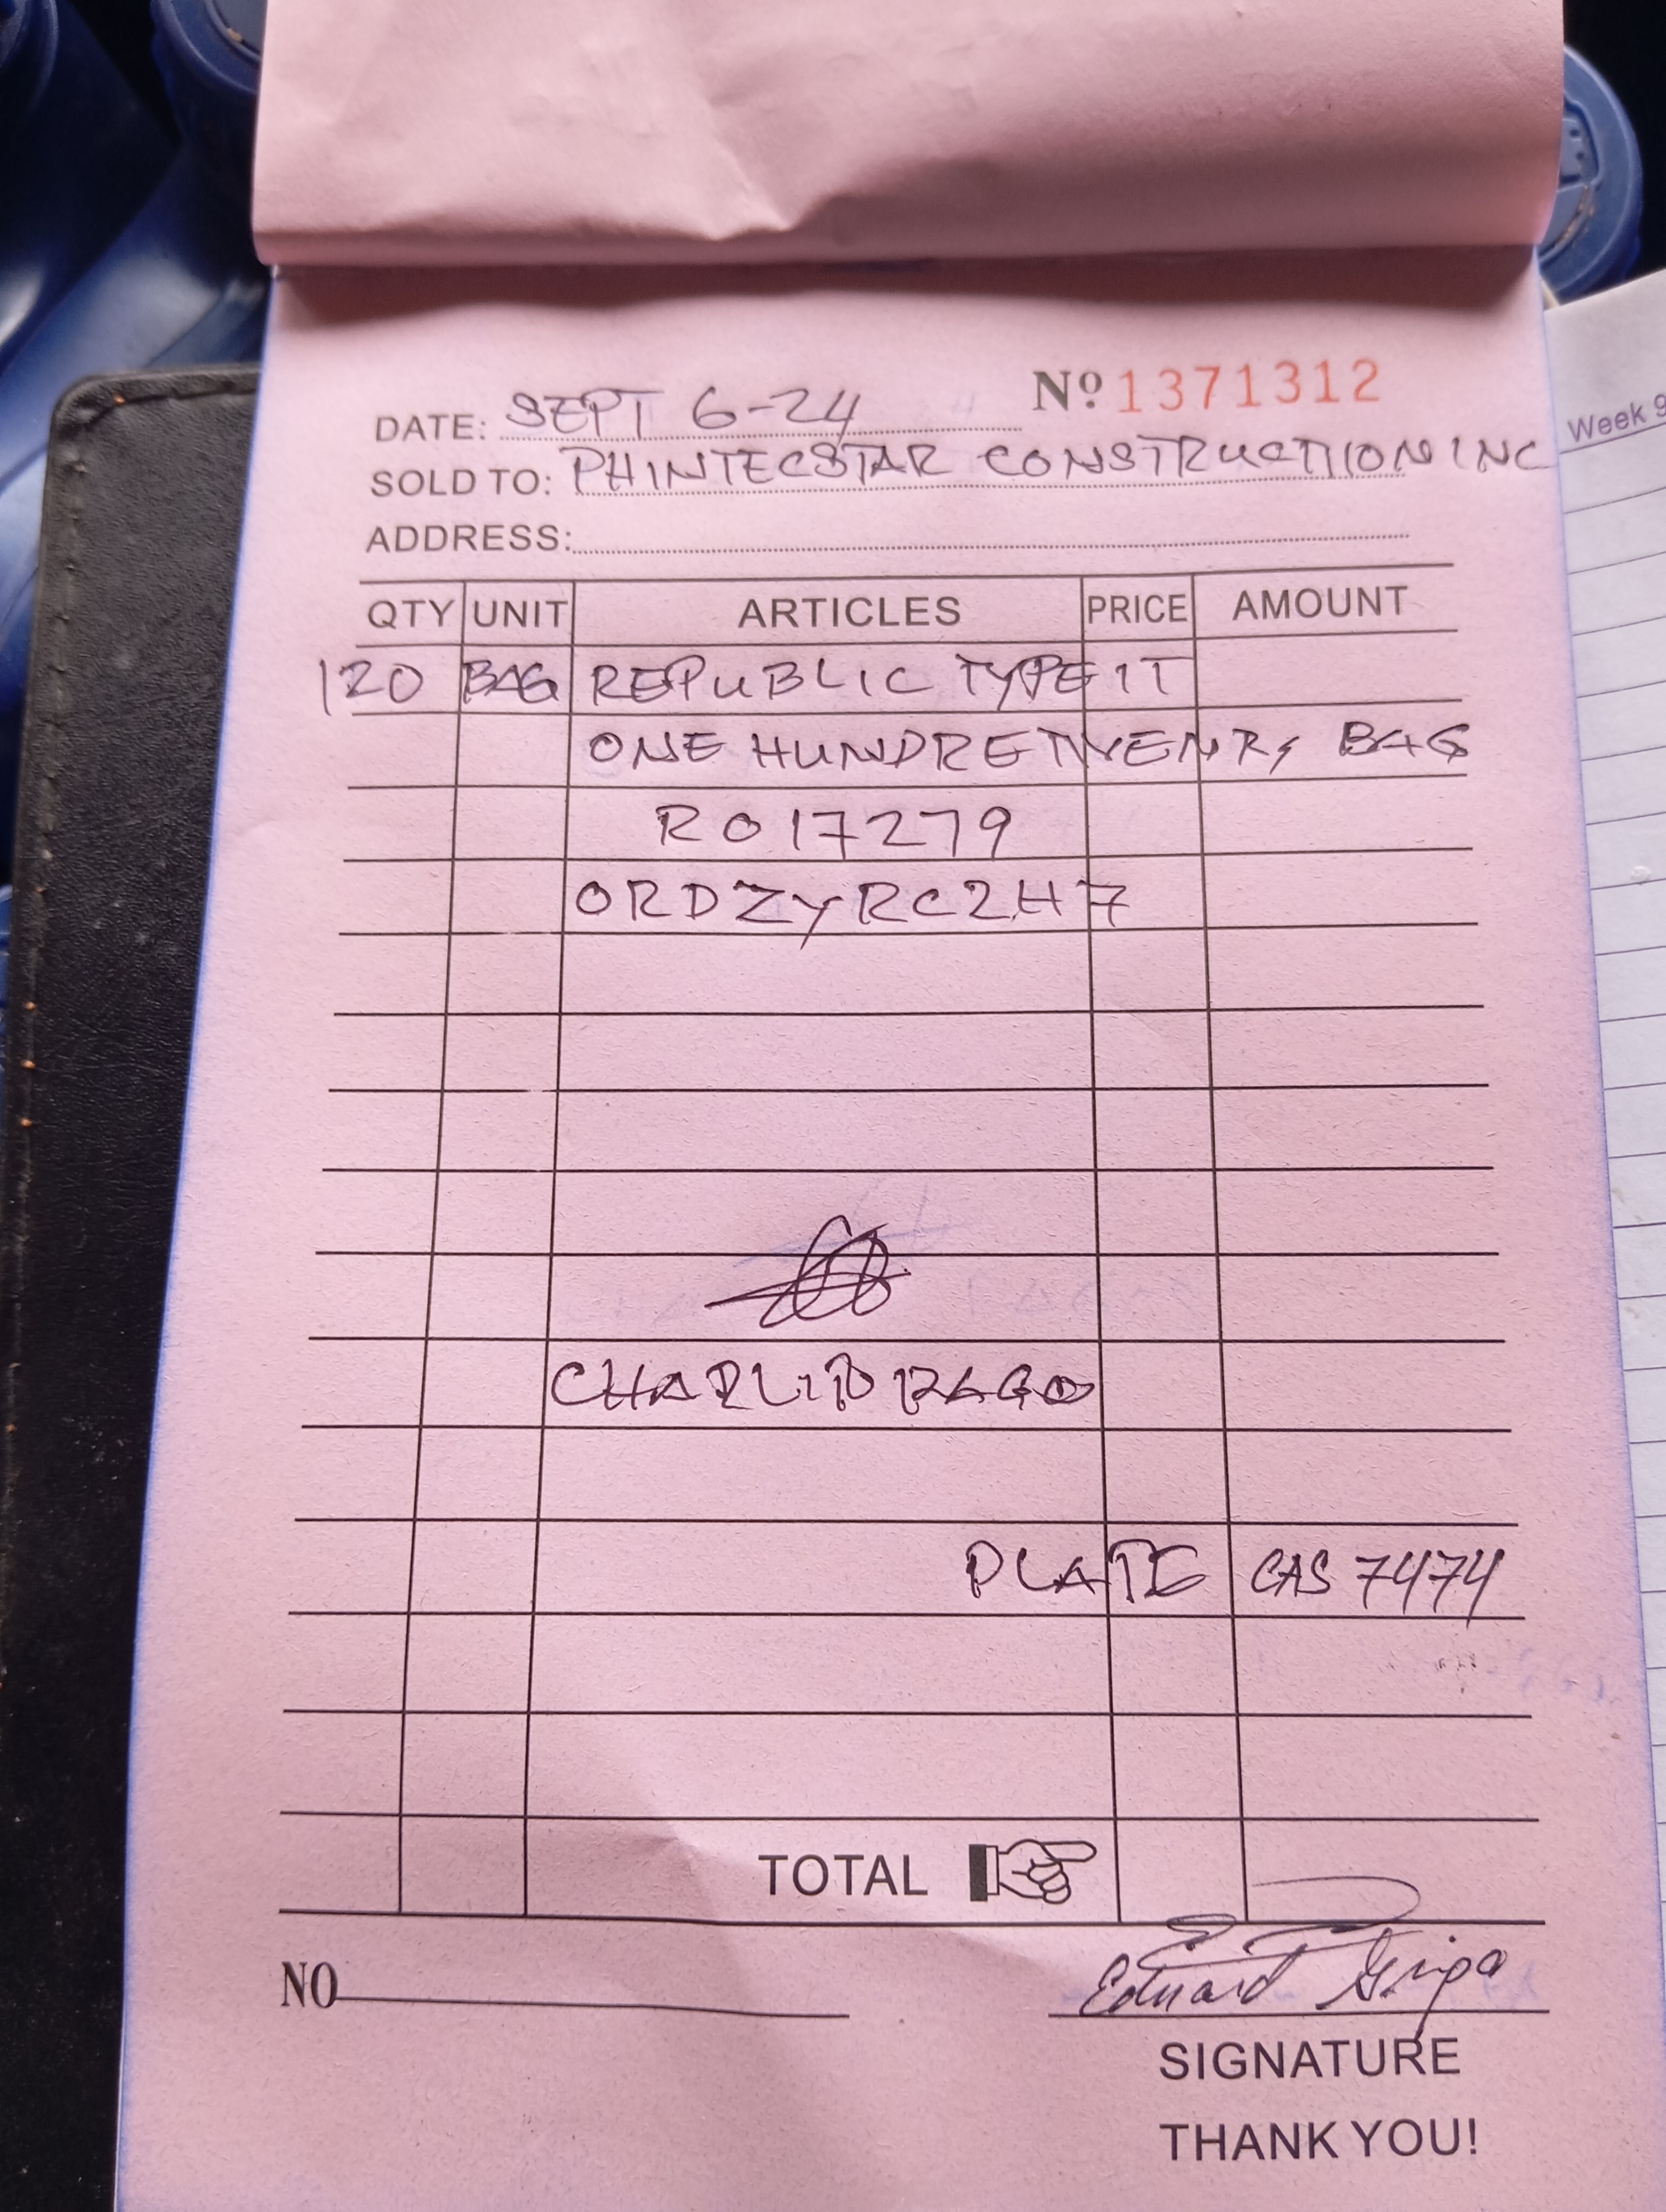 Week 9
DATE: SEPT 6-24 Nº 1371312
SOLD TO: PHINTECSTAR CONSTRUCTION INC
ADDRESS:
QTY UNIT ARTICLES PRICE AMOUNT
120 BAG REPUBLIC TYPE 1T
ONE HUNDRE TWENRY BAG
RO17279
ORDZYRC2H7
PLATE CAS 7474
TOTAL
NO
SIGNATURE
THANK YOU!